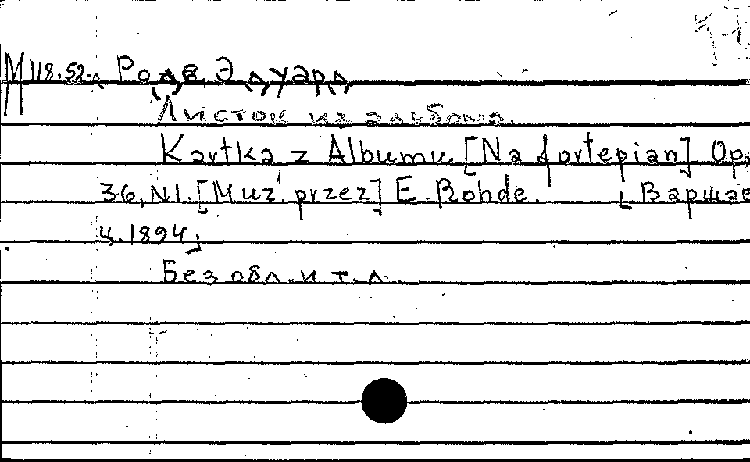 М 118.52 Роде, Эдуард
Листок из альбома.
Kartka z Albumu. [Na fortepian] Op.
36, N1. [Muz. przez] E. Rohde. [Варшав
ц. 1894]
Без обл. и т. л.